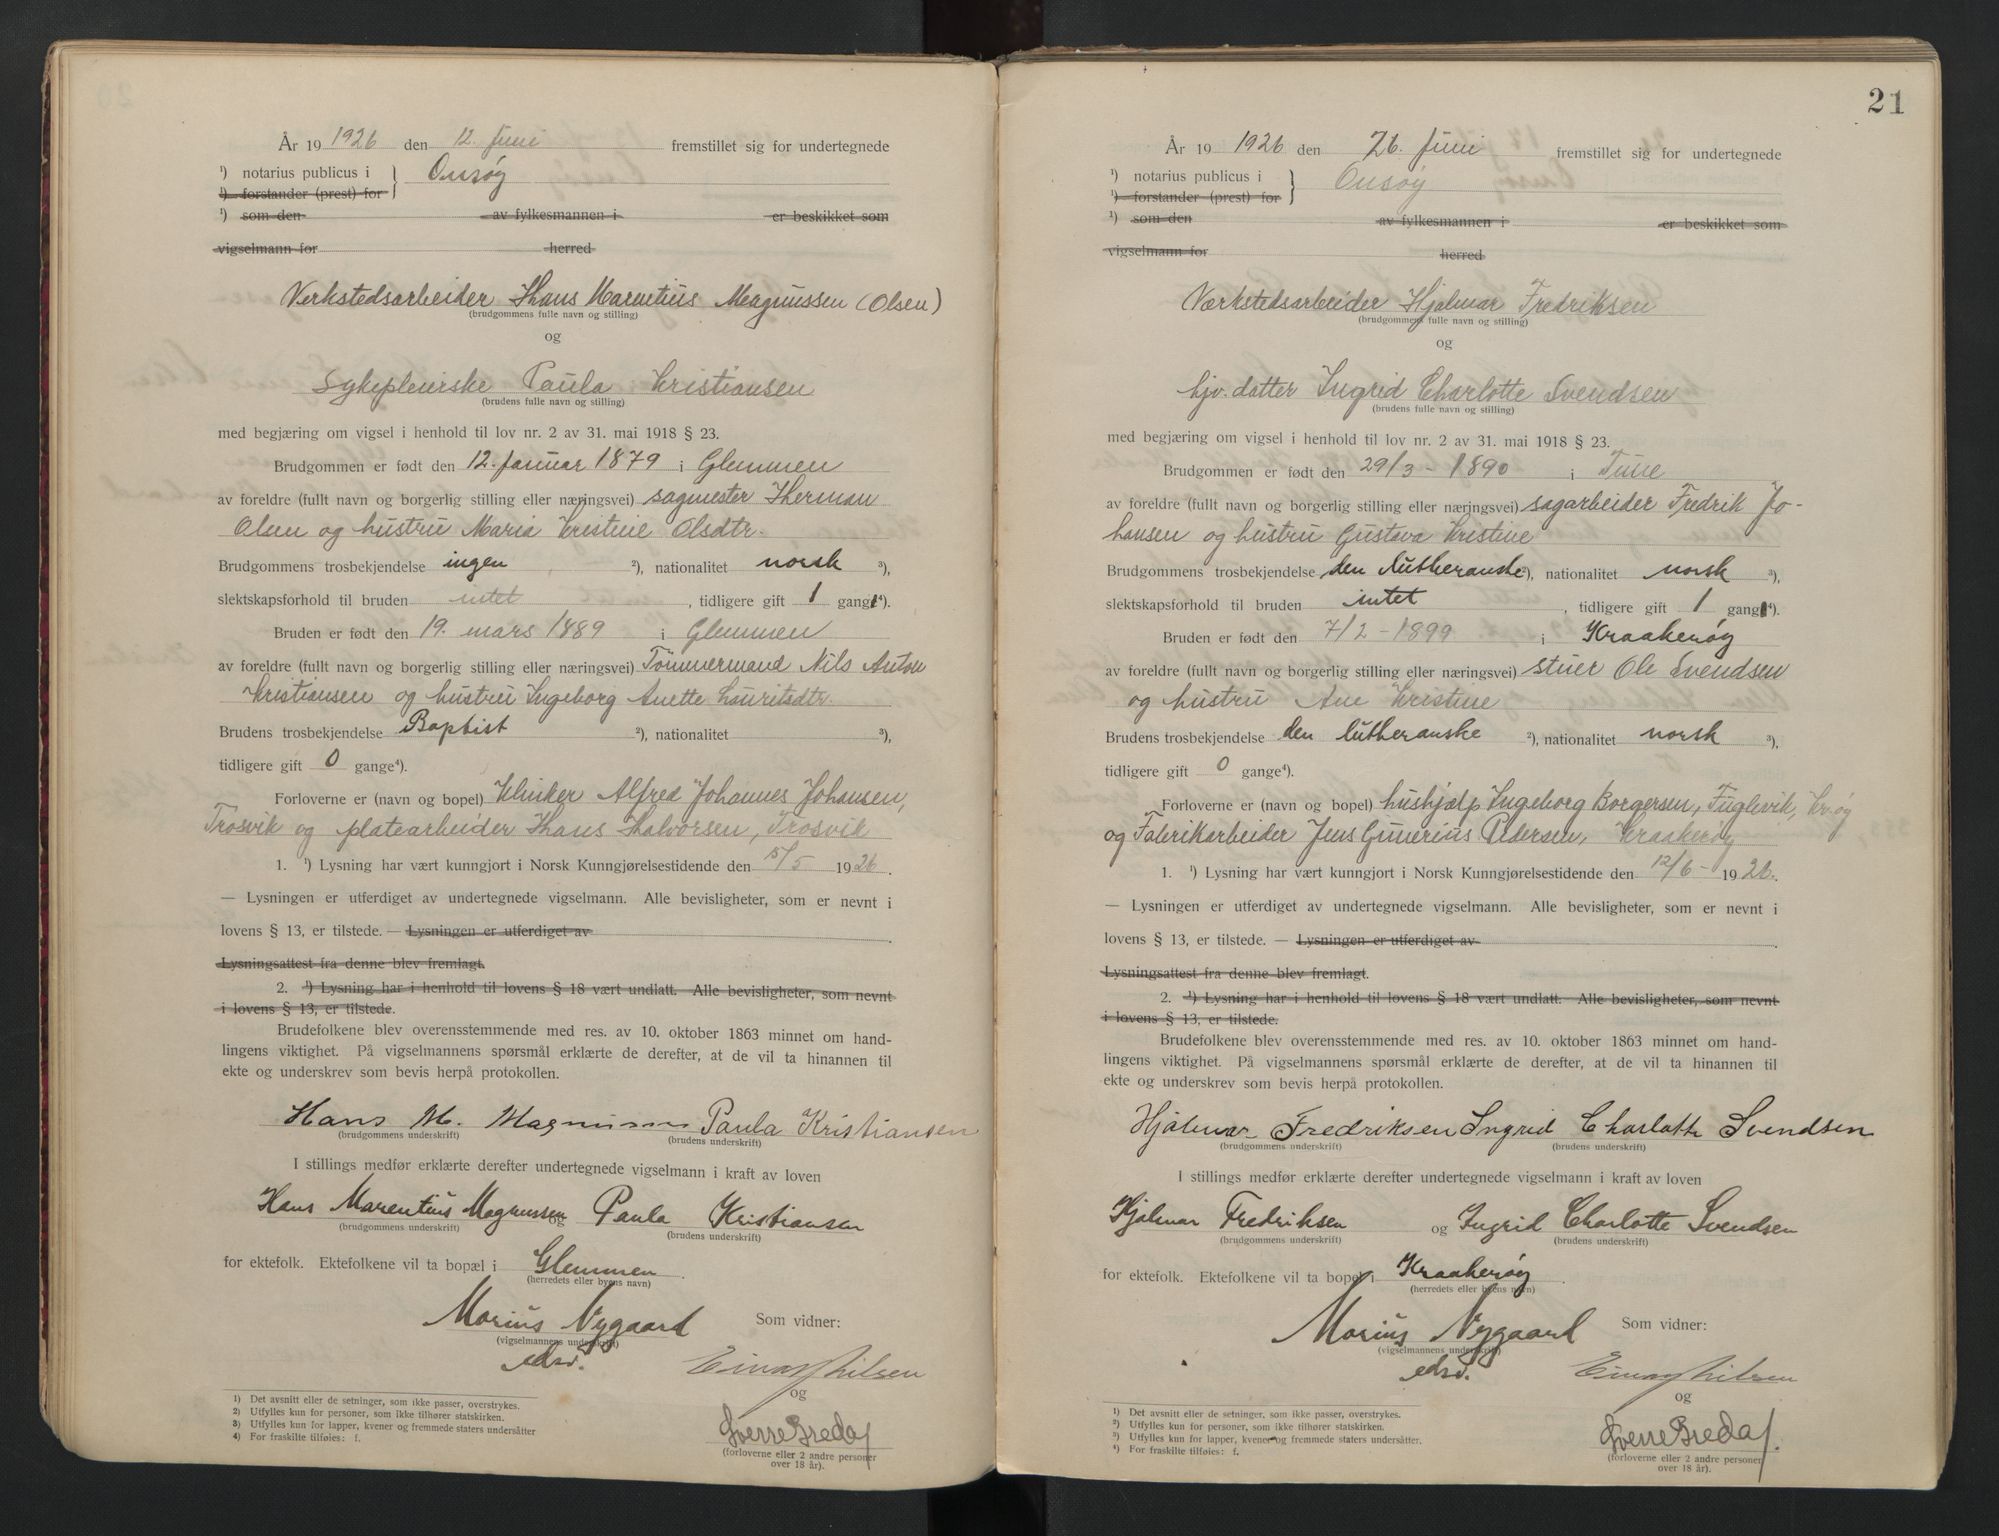 År 19 1926 den 12. Juni fremstillet sig for undertegnede
¹) notarius publicus i } Onsøy
¹) forstander (prest) for
¹) som den av fylkesmannen i er beskikket som
vigselmann for herred
Verkstedsarbeider Hans Marentius Magnussen (Olsen)
(brudgommens fulle navn og stilling)
og
Sykepleierske Paula Kristiansen
(brudens fulle navn og stilling)
med begjæring om vigsel i henhold til lov nr. 2 av 31. mai 1918 § 23.
Brudgommen er født den 12. Januar 1879 i Glemmen
av foreldre (fullt navn og borgerlig stilling eller næringsvei) sagmester Herman
Olsen og hustru Maria Kristine Olsdtr.
Brudgommens trosbekjendelse ingen ²), nationalitet norsk ³),
slektskapsforhold til bruden intet , tidligere gift 1 gang⁴).
Bruden er født den 19. mars 1889 i Glemmen
av foreldre (fullt navn og borgerlig stilling eller næringsvei) Tömmermand Nils Anton
Kristiansen og hustru Ingeborg Anette Lauritsdtr.
Brudens trosbekjendelse Baptist ²), nationalitet ³),
tidligere gift 0 gange⁴).
Forloverne er (navn og bopel) Klinker Alfred Johannes Johansen,
Trosvik og platearbeider Hans Halvorsen, Trosvik
1. ¹) Lysning har vært kunngjort i Norsk Kunngjørelsestidende den 15/5 1926.
— Lysningen er utferdiget av undertegnede vigselmann. Alle bevisligheter, som er nevnt i
lovens § 13, er tilstede. — Lysningen er utferdiget av
Lysningsattest fra denne blev fremlagt.
2. ¹) Lysning har i henhold til lovens § 18 vært undlatt. Alle bevisligheter, som nevnt
i lovens § 13, er tilstede.
Brudefolkene blev overensstemmende med res. av 10. oktober 1863 minnet om hand-
lingens viktighet. På vigselmannens spørsmål erklærte de derefter, at de vil ta hinannen til
ekte og underskrev som bevis herpå protokollen.
Hans M. Magnussen Paula Kristiansen
(brudgommens underskrift) (brudens underskrift)
I stillings medfør erklærte derefter undertegnede vigselmann i kraft av loven
Hans Marentius Magnussen og Paula Kristiansen
(brudgommens underskrift) (brudens underskrift)
for ektefolk. Ektefolkene vil ta bopæl i Glemmen.
(herredets eller byens navn)
Marius Nygaard Som vidner:
(vigselmannens underskrift)
edsv. Einar Nilsen
og
Sverre Breda
(forloverne eller 2 andre personer
over 18 år).
1) Det avsnitt eller de setninger, som ikke passer, overstrykes.
2) Utfylles kun for personer, som ikke tilhører statskirken.
3) Utfylles kun for lapper, kvener og fremmede staters undersåtter
4) For fraskilte tilføies: f.
21
År 19 1926 den 26. Juni fremstillet sig for undertegnede
¹) notarius publicus i } Onsøy
¹) forstander (prest) for
¹) som den av fylkesmannen i er beskikket som
vigselmann for herred
Værkstedsarbeider Hjalmar Fredriksen
(brudgommens fulle navn og stilling)
og
hjv. datter Ingrid Charlotte Svendsen
(brudens fulle navn og stilling)
med begjæring om vigsel i henhold til lov nr. 2 av 31. mai 1918 § 23.
Brudgommen er født den 29/3 - 1890 i Tune
av foreldre (fullt navn og borgerlig stilling eller næringsvei) sagarbeider Fredrik Jo-
hansen og hustru Gustava Kristine
Brudgommens trosbekjendelse den lutheranske ²), nationalitet norsk ³),
slektskapsforhold til bruden intet , tidligere gift 1 gang⁴).
Bruden er født den 7/2 - 1899 i Kraakerøy
av foreldre (fullt navn og borgerlig stilling eller næringsvei) stuer Ole Svendsen
og hustru Ane Kristine
Brudens trosbekjendelse den lutheranske ²), nationalitet norsk ³),
tidligere gift 0 gange⁴).
Forloverne er (navn og bopel) hushjælp Ingeborg Borgersen, Fuglevik, Kr.øy
og Fabrikarbeider Jens Gunerius Pedersen, Kraakerøy
1. ¹) Lysning har vært kunngjort i Norsk Kunngjørelsestidende den 12/6 - 1926.
— Lysningen er utferdiget av undertegnede vigselmann. Alle bevisligheter, som er nevnt i
lovens § 13, er tilstede. — Lysningen er utferdiget av
Lysningsattest fra denne blev fremlagt.
2. ¹) Lysning har i henhold til lovens § 18 vært undlatt. Alle bevisligheter, som nevnt
i lovens § 13, er tilstede.
Brudefolkene blev overensstemmende med res. av 10. oktober 1863 minnet om hand-
lingens viktighet. På vigselmannens spørsmål erklærte de derefter, at de vil ta hinannen til
ekte og underskrev som bevis herpå protokollen.
Hjalmar Fredriksen Ingrid Charlotte Svendsen
(brudgommens underskrift) (brudens underskrift)
I stillings medfør erklærte derefter undertegnede vigselmann i kraft av loven
Hjalmar Fredriksen og Ingrid Charlotte Svendsen
(brudgommens underskrift) (brudens underskrift)
for ektefolk. Ektefolkene vil ta bopel i Kraakerøy
(herredets eller byens navn)
Marius Nygaard Som vidner:
(vigselmannens underskrift)
edsv. Einar Nilsen
og
Sverre Breda
(forloverne eller 2 andre personer
over 18 år).
1) Det avsnitt eller de setninger, som ikke passer, overstrykes.
2) Utfylles kun for personer, som ikke tilhører statskirken.
3) Utfylles kun for lapper, kvener og fremmede staters undersåtter.
4) For fraskilte tilføies: f.